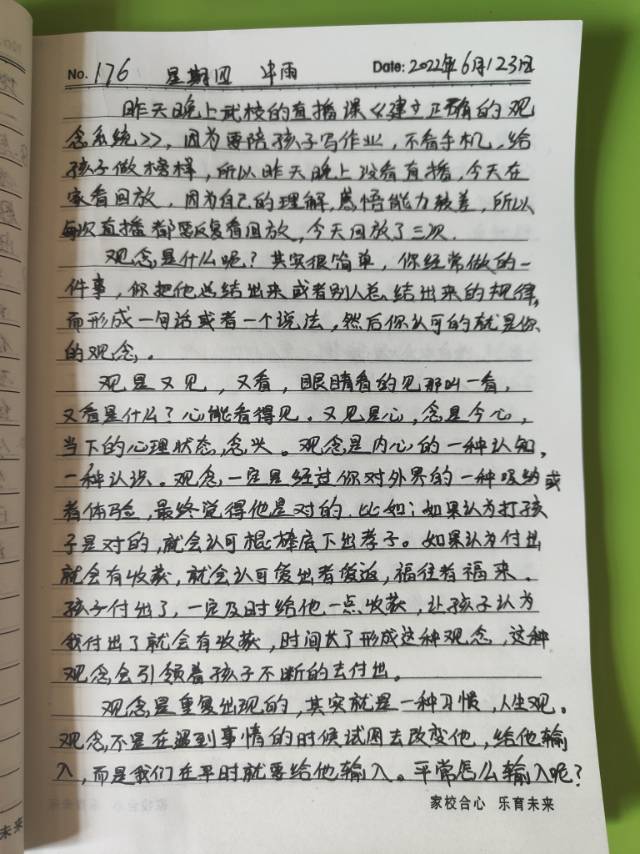 No. 176 星期四 中雨 Date: 2022年6月23日
昨天晚上武校的直播课《建立正确的观
念系统》，因为要陪孩子写作业，不看手机，给
孩子做榜样，所以昨天晚上没看直播，今天在
家看回放，因为自己的理解，感悟能力较差，所以
每次直播都要反复看回放，今天回放了三次.
观念是什么呢？其实很简单，你经常做的一
件事，你把他总结出来或者别人总结出来的规律，
而形成一句话或者一个说法，然后你认可的就是你
的观念。
观是又见，又看，眼睛看的见那叫一看，
又看是什么？心能看得见。又见是心，念是今心，
当下的心理状态，念头。观念是内心的一种认知，
一种认识。观念一定是经过你对外界的一种吸纳或
者体验，最终觉得他是对的，比如：如果认为打孩
子是对的，就会认可棍棒底下出孝子。如果认为付出
就会有收获，就会认可爱出者爱返，福往者福来。
孩子付出了，一定及时给他一点收获，让孩子认为
我付出了就会有收获，时间长了形成这种观念，这种
观念会引领着孩子不断的去付出。
观念是重复出现的，其实就是一种习惯，人生观。
观念不是在遇到事情的时候试图去改变他，给他输
入，而是我们在平时就要给他输入。平常怎么输入呢？
家校合心 乐育未来